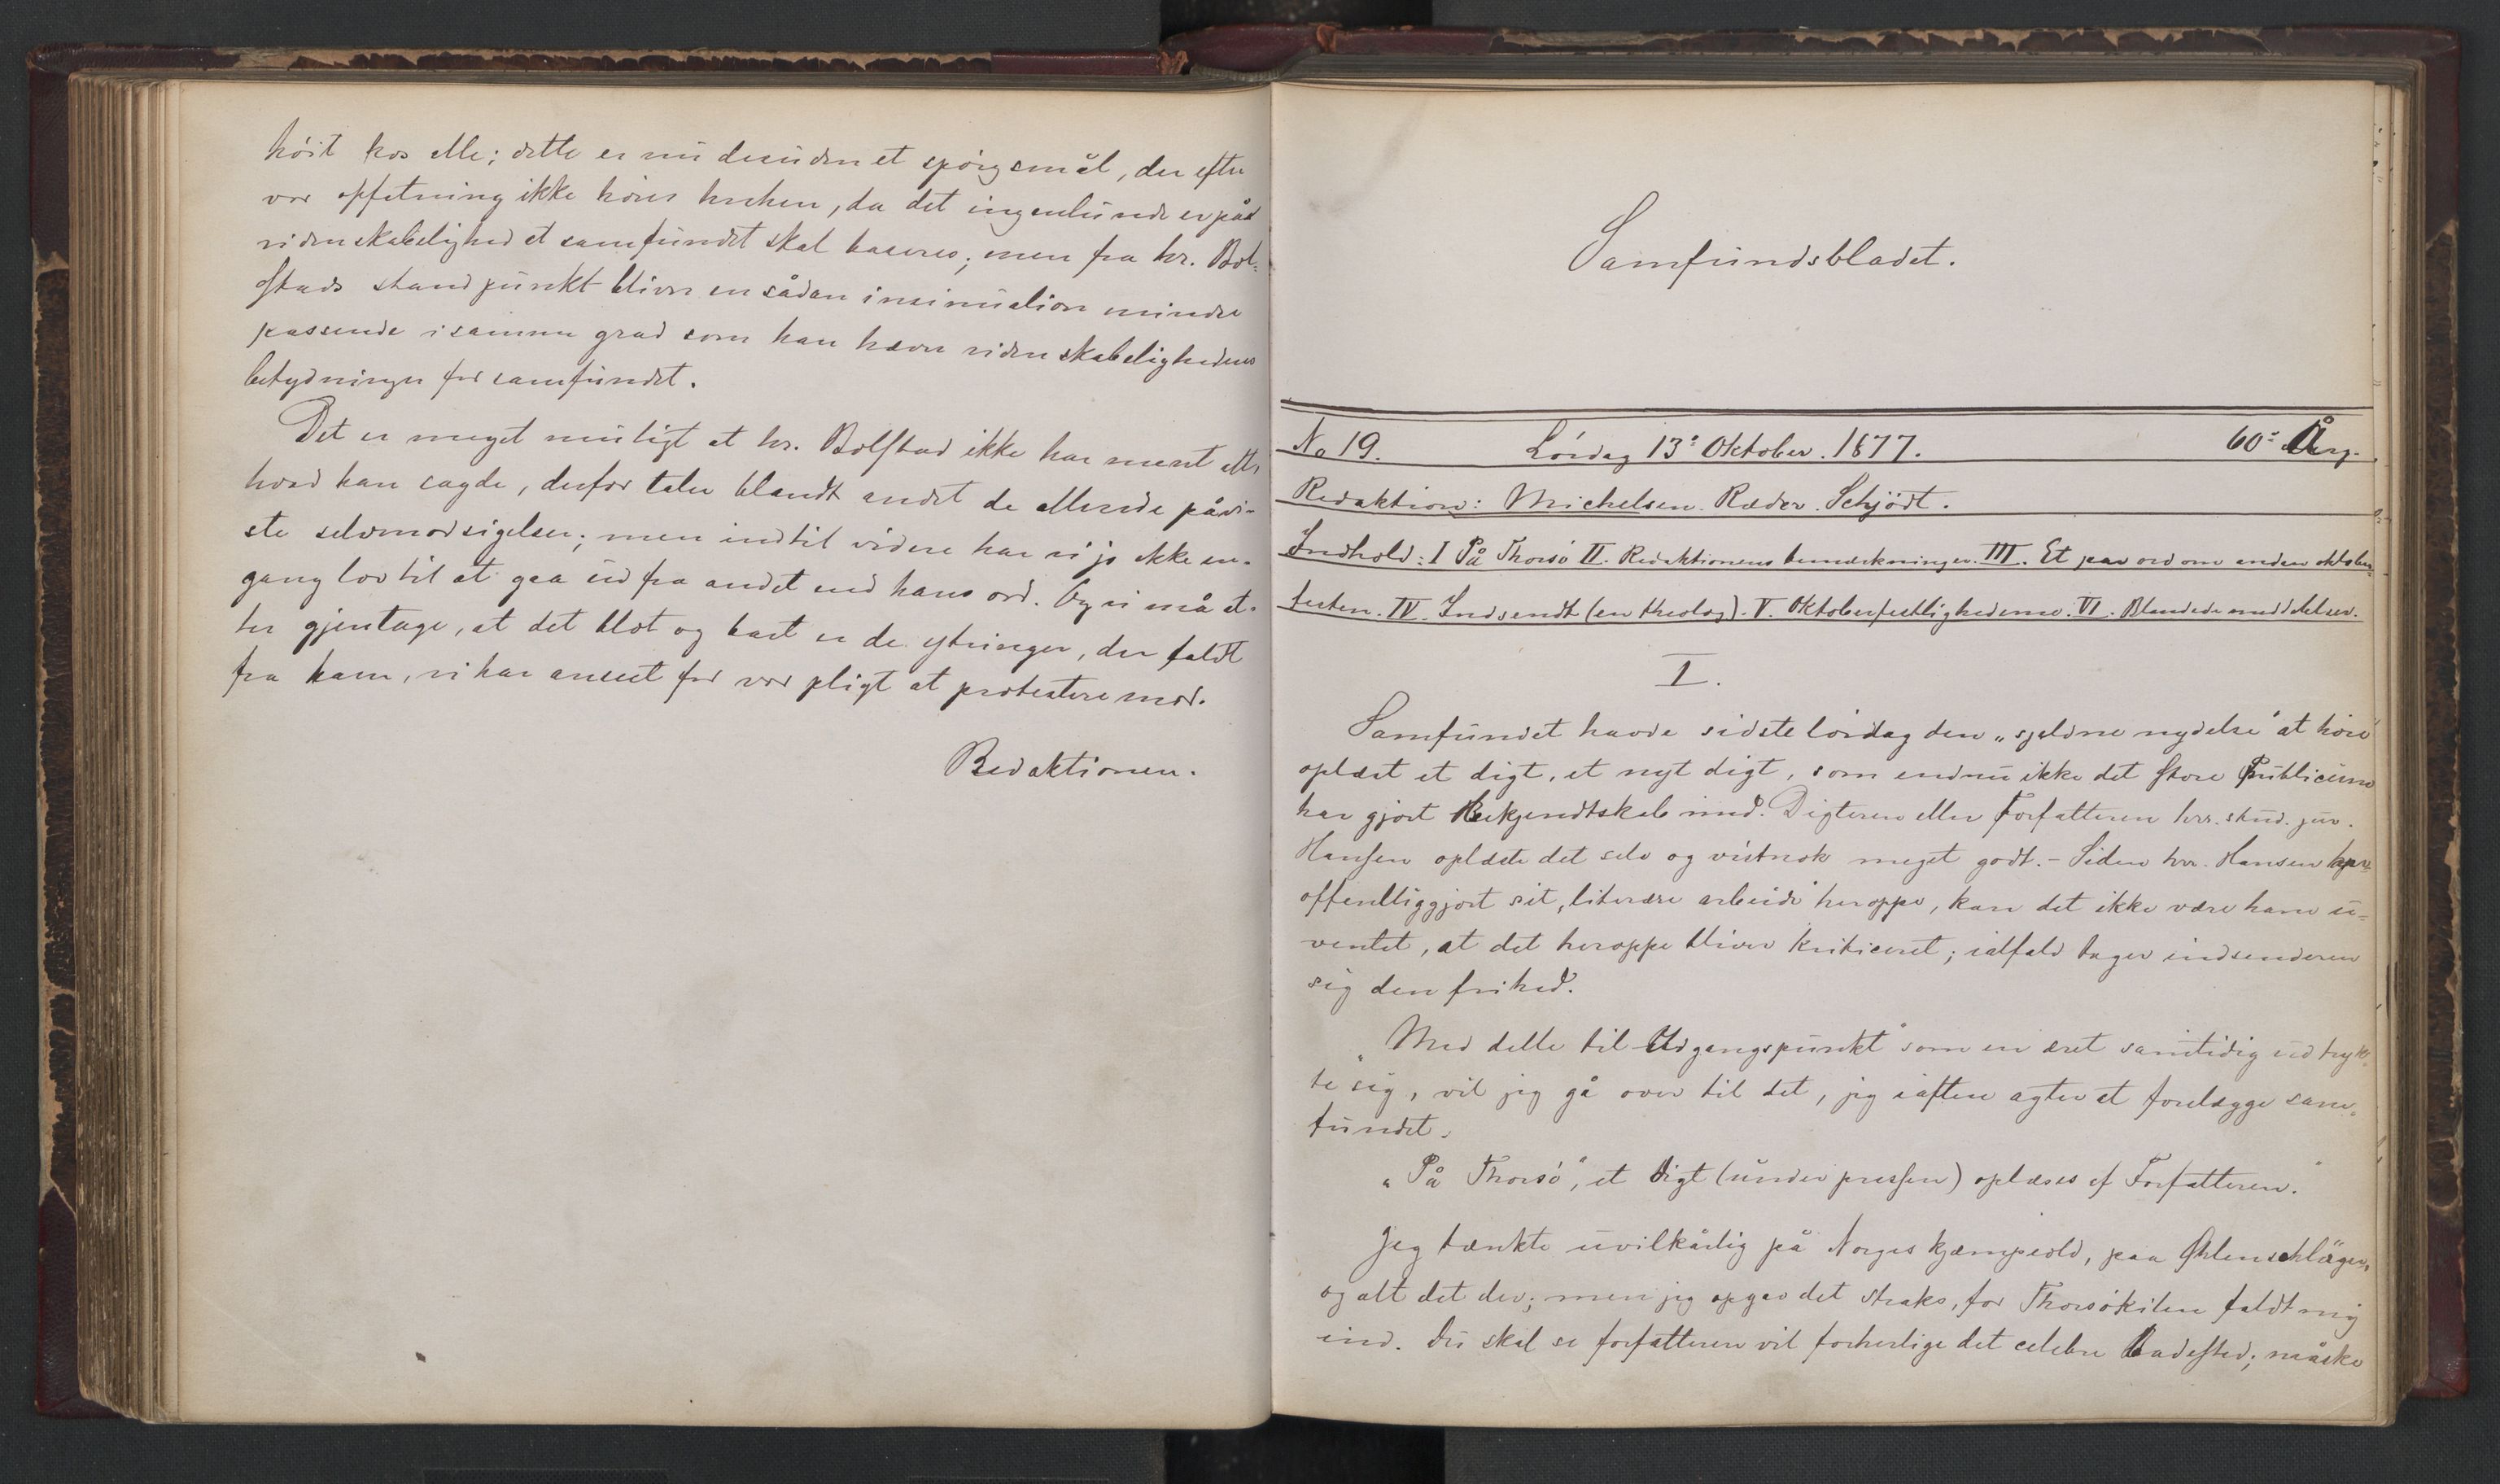 høit hos alle; dette er nu desuden et spörgsmål, der efter
vor opfatning ikke hører herhen, da det ingenlunde er på
videnskabelighed at samfundet skal baseres; men fra hr. Bol-
stads standpunkt bliver en sådan insinuation mindre
passende i samme grad som han hæver videnskabelighedens
betydning for samfundet.
Det er meget muligt at hr. Bolstad ikke har ment alt,
hvad han sagde, derfor taler blandt andet de allerede påvi-
ste selvmodsigelser; men indtil videre har vi jo ikke en-
gang lov til at gaa ud fra andet end hans ord. Og vi må at-
ter gjentage, at det blot og bart er de ytringer, der faldt
fra ham, vi har anseet for vor pligt at protestere mod.
Redaktionen.
Samfundsbladet.
No 19. Lördag 13de Oktober. 1877. 60de Årg.
Redaktion: Michelsen. Ræder. Schjödt.
Indhold: I På Thorsö II. Redaktionens bemærkninger. III. Et par ord om anden oktober-
festen. IV. Indsendt (en theolog). V. Oktoberfestlighederne. VI. Blandede meddelelser.
I.
Samfundet havde sidste lördag den „sjeldne nydelse" at höre
oplæst et digt, et nyt digt, som endnu ikke det store Publicum
har gjort Bekjendtskab med. Digteren eller Forfatteren hrr. stud. jur.
Hansen oplæste det selv og vistnok meget godt. – Siden hrr. Hansen har
offentliggjort sit „literære arbeide" heroppe, kan det ikke være ham u-
ventet, at det heroppe bliver kritiseret; ialfald tager indsenderen
sig den frihed.
„Med dette til Udgangspunkt" som en æret samtidig udtryk-
te sig, vil jeg gå over til det, jeg iaften agter at forelægge sam-
fundet.
„På Thorsö", et Digt (under pressen) oplæses af Forfatteren."
Jeg tænkte uvilkårlig på Norges kjæmpeold, paa Øhlenschläger,
og alt det der; men jeg opgav det straks, for Thorsökilen faldt mig
ind. Du skal se forfatteren vil forherlige det celebre Badested; måske